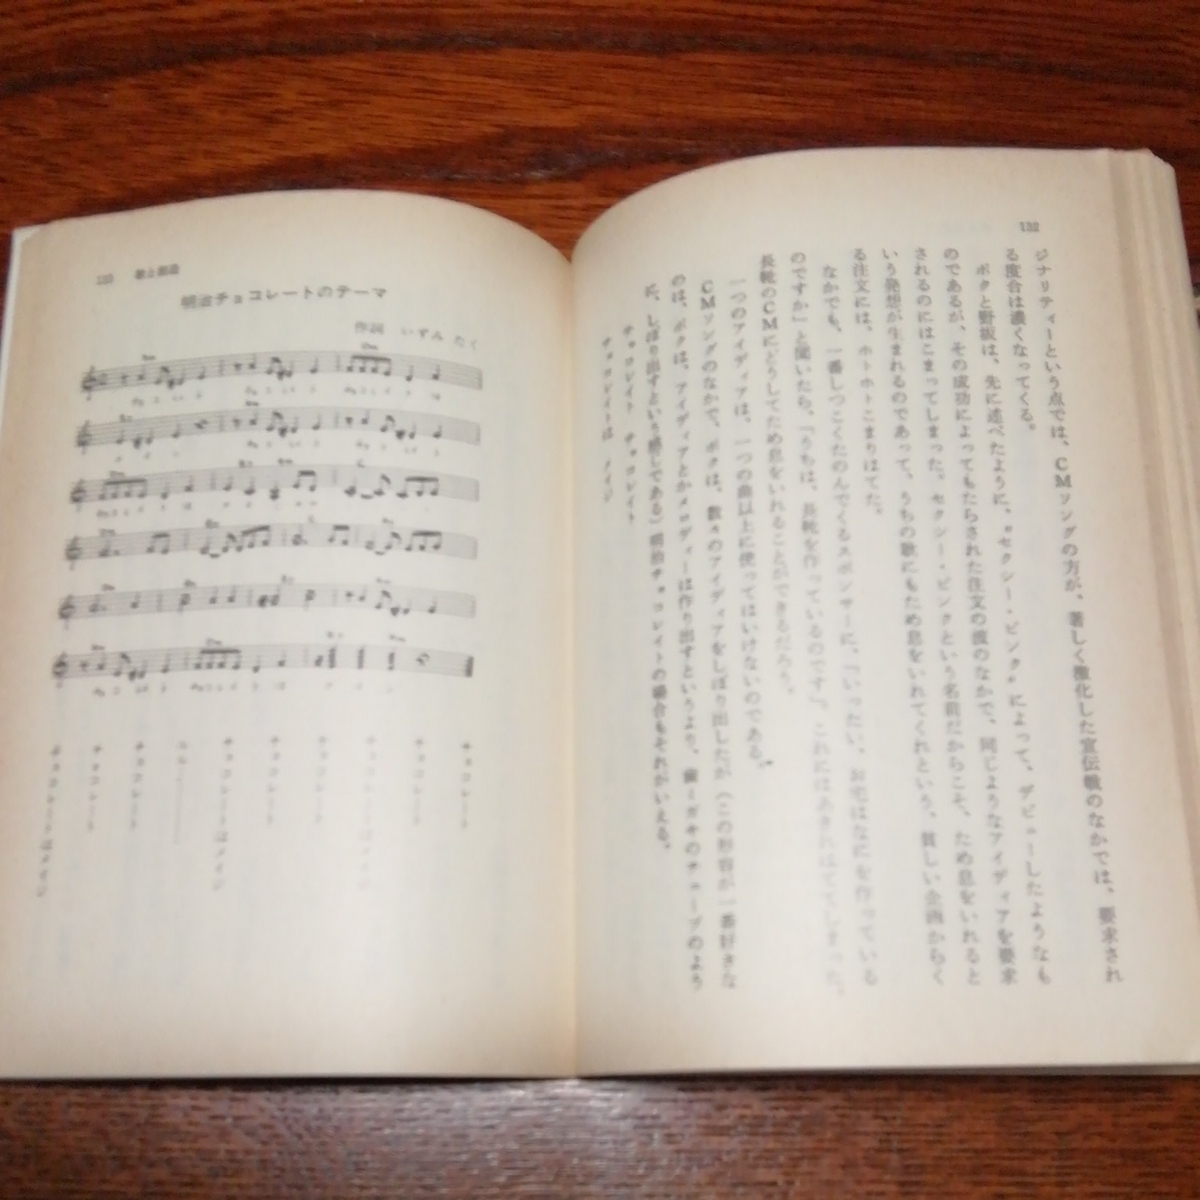 132
ジナリティーという点では、CMソングの方が、著しく激化した宣伝戦のなかでは、要求され
る度合は濃くなってくる。
ボクと野坂は、先に述べたように、“セクシー・ピンク”によって、デビューしたようなも
のであるが、その成功によってもたらされた注文の波のなかで、同じようなアイディアを要求
されるのにはこまってしまった。セクシー・ピンクという名前だからこそ、ため息をいれると
いう発想が生まれるのであって、うちの歌にもため息をいれてくれという、貧しい企画からく
る注文には、ホトホトこまりはてた。
なかでも、一番しつこくたのんでくるスポンサーに、『いったい、お宅はなにを作っている
のですか』と聞いたら、『うちは、長靴を作っているのです』。これにはあきれはててしまった。
長靴のCMにどうしてため息をいれることができるだろう。
一つのアイディアは、一つの曲以上に使ってはいけないのである。
CMソングのなかで、ボクは、数々のアイディアをしぼり出したが（この形容が一番好きな
のは、ボクは、アイディアとかメロディーは作り出すというより、歯ミガキのチューブのよう
に、しぼり出すという感じである）明治チョコレイトの場合もそれがいえる。
チョコレイト チョコレイト
チョコレイトは メイジ
133 歌と創造
明治チョコレートのテーマ
作詞 いずみ たく
チョコレート
チョコレート
チョコレートはメイジ
チョコレート
チョコレート
チョコレートはメイジ
チョコレート
チョコレート
チョコレートはメイジ